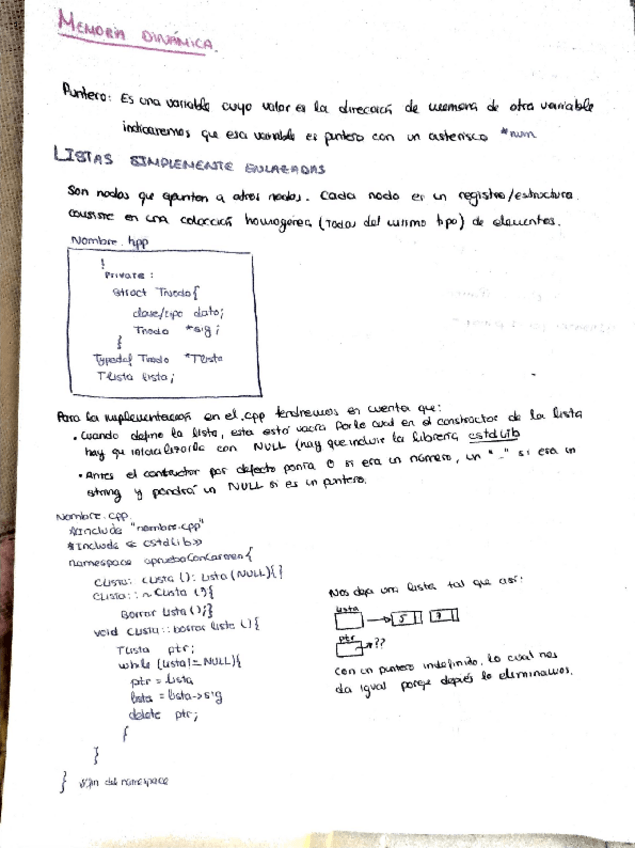 MEMORIA DINÁMICA.
Puntero: Es una variable cuyo valor es la dirección de memoria de otra variable
indicaremos que esa variable es puntero con un asterisco *num
LISTAS SIMPLEMENTE ENLAZADAS
Son nodos que apuntan a otros nodos. Cada nodo es un registro/estructura.
consiste en una colección homogénea (Todos del mismo tipo) de elementos.
Nombre.hpp
Private:
Struct Tnodo{
clase/tipo dato;
Tnodo *sig;
}
Typedef Tnodo *Tlista
Tlista lista;
Para la implementación en el .cpp tendremos en cuenta que:
• Cuando define la lista, esta está vacía por lo cual en el constructor de la lista
hay que inicializarla con NULL (hay que incluir la librería cstdlib
• Antes el constructor por defecto ponía 0 si era un número, un "_" si era un
string y pondrá un NULL si es un puntero.
Nombre.cpp
#Include "nombre.cpp"
#Include < cstdlib>
namespace apruebaConCarmen{
Clista:: Clista (): lista(NULL){}
Clista::~Clista (){
Borrar lista();}
void Clista::borrar lista (){
Tlista ptr;
while (lista!=NULL){
ptr = lista
lista = lista->sig
delete ptr;
{
}
} //fin del namespace
Nos deja una lista tal que así:
lista
5
ptr
??
con un puntero indefinido, lo cual nos
da igual porque después lo eliminamos.